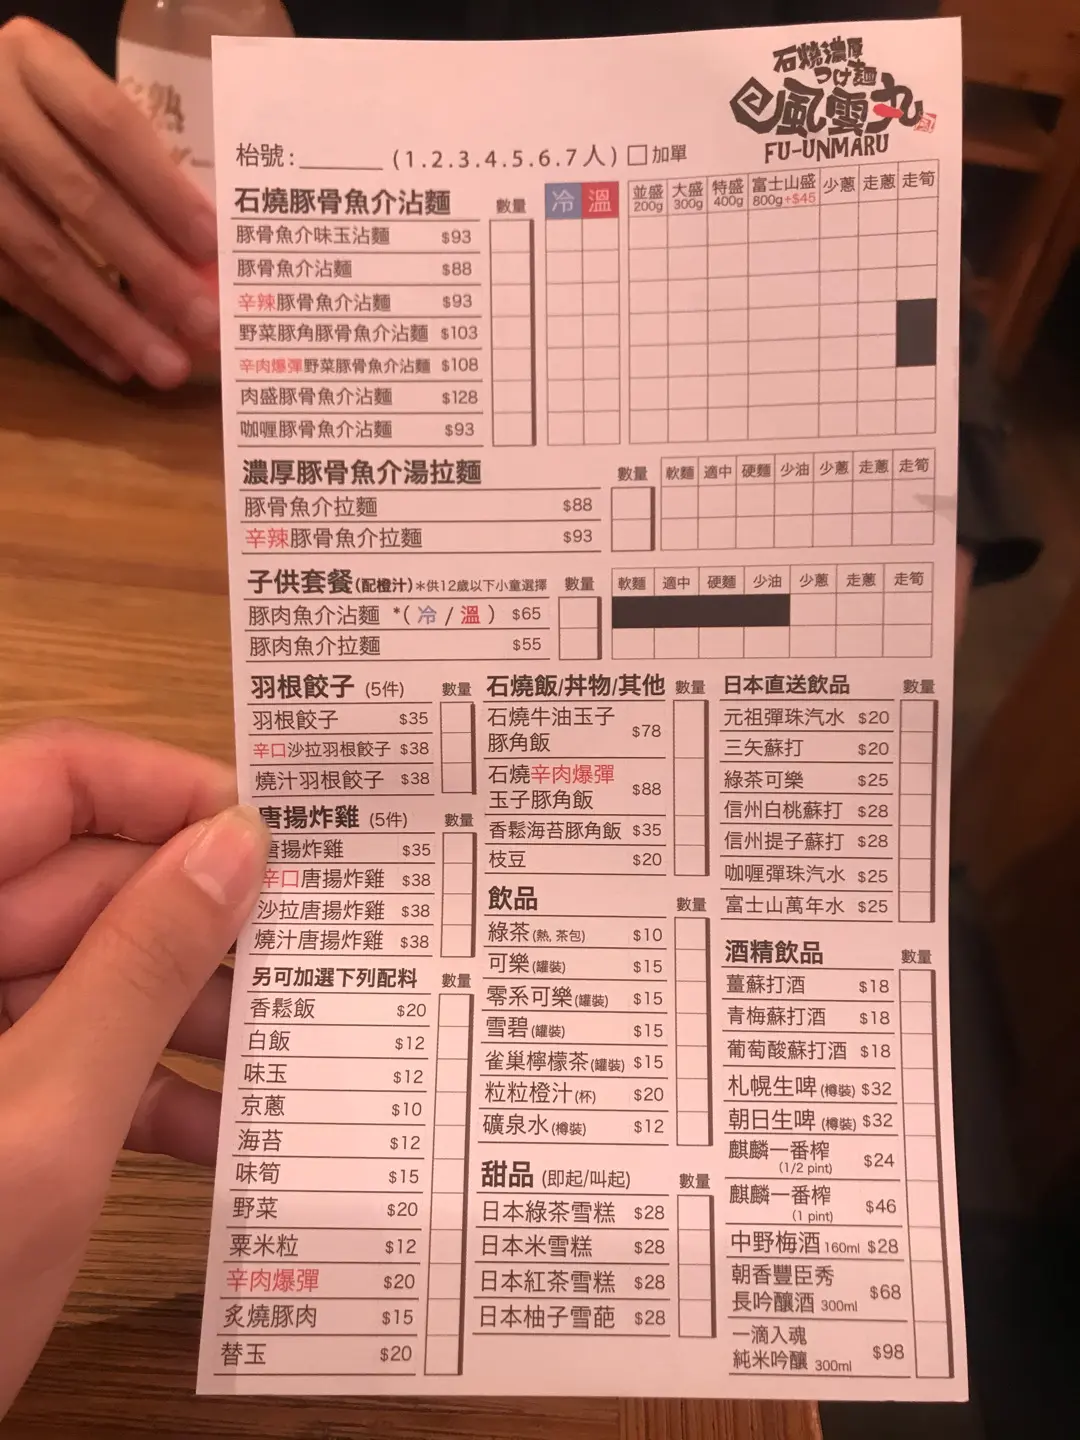 石燒濃厚
つけ麺
風雲丸
FU-UNMARU
枱號:______ (1.2.3.4.5.6.7人) □加單
石燒豚骨魚介沾麵 數量 冷 溫 並盛200g 大盛300g 特盛400g 富士山盛800g+$45 少蔥 走蔥 走筍
豚骨魚介味玉沾麵 $93
豚骨魚介沾麵 $88
辛辣豚骨魚介沾麵 $93
野菜豚角豚骨魚介沾麵 $103
辛肉爆彈野菜豚骨魚介沾麵 $108
肉盛豚骨魚介沾麵 $128
咖喱豚骨魚介沾麵 $93
濃厚豚骨魚介湯拉麵 數量 軟麵 適中 硬麵 少油 少蔥 走蔥 走筍
豚骨魚介拉麵 $88
辛辣豚骨魚介拉麵 $93
子供套餐(配橙汁)*供12歲以下小童選擇 數量 軟麵 適中 硬麵 少油 少蔥 走蔥 走筍
豚肉魚介沾麵 *(冷/溫) $65
豚肉魚介拉麵 $55
羽根餃子 (5件) 數量
羽根餃子 $35
辛口沙拉羽根餃子 $38
燒汁羽根餃子 $38
唐揚炸雞 (5件) 數量
唐揚炸雞 $35
辛口唐揚炸雞 $38
沙拉唐揚炸雞 $38
燒汁唐揚炸雞 $38
另可加選下列配料 數量
香鬆飯 $20
白飯 $12
味玉 $12
京蔥 $10
海苔 $12
味筍 $15
野菜 $20
粟米粒 $12
辛肉爆彈 $20
炙燒豚肉 $15
替玉 $20
石燒飯/丼物/其他 數量
石燒牛油玉子
豚角飯 $78
石燒辛肉爆彈
玉子豚角飯 $88
香鬆海苔豚角飯 $35
枝豆 $20
飲品 數量
綠茶(熱, 茶包) $10
可樂(罐裝) $15
零系可樂(罐裝) $15
雪碧(罐裝) $15
雀巢檸檬茶(罐裝) $15
粒粒橙汁(杯) $20
礦泉水(樽裝) $12
甜品 (即起/叫起) 數量
日本綠茶雪糕 $28
日本米雪糕 $28
日本紅茶雪糕 $28
日本柚子雪葩 $28
日本直送飲品 數量
元祖彈珠汽水 $20
三矢蘇打 $20
綠茶可樂 $25
信州白桃蘇打 $28
信州提子蘇打 $28
咖喱彈珠汽水 $25
富士山萬年水 $25
酒精飲品 數量
薑蘇打酒 $18
青梅蘇打酒 $18
葡萄酸蘇打酒 $18
札幌生啤(樽裝) $32
朝日生啤(樽裝) $32
麒麟一番榨
(1/2 pint) $24
麒麟一番榨
(1 pint) $46
中野梅酒 160ml $28
朝香豐臣秀
長吟釀酒 300ml $68
一滴入魂
純米吟釀 300ml $98